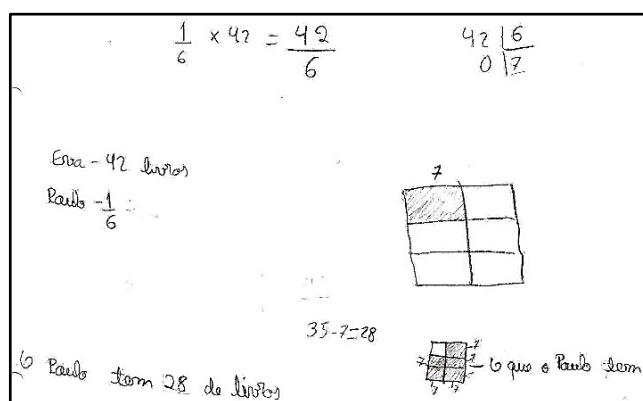 1/6 × 42 = 42/6
42 | 6
0 | 7
Eva - 42 livros
Paulo - 1/6 =
7
35-7=28
7
7
7
7 7
O Paulo tem 28 de livros
O que o Paulo tem